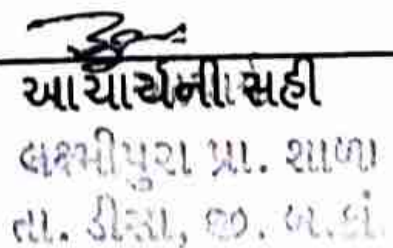 આચાર્યની સહી
લક્ષ્મીપુરા પ્રા. શાળા
તા. ડીસા, જી. બ.કાં.